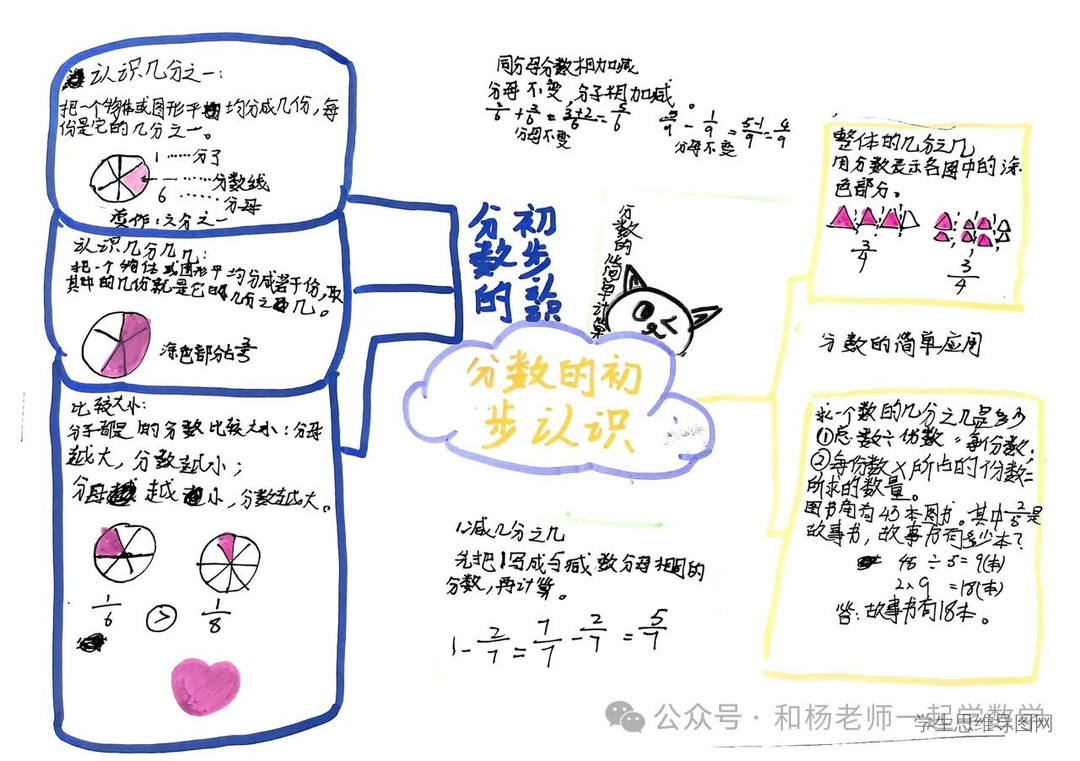 认识几分之一：
把一个物体或图形平均分成几份，每
份是它的几分之一。
1……分子
—……分数线
6……分母
读作：六分之一
认识几分几几：
把一个物体或图形平均分成若干份，取
其中的几份就是它的几分之几。
涂色部分占
比较大小：
分子都是1的分数比较大小：分母
越大，分数越小；
分母越小，分数越大。
1/6 > 1/8
同分母分数相加减
分母不变，分子相加减。
3/6 = 3+2/6 = 5/6
分母不变
5/9 - 1/9 = 5-1/9 = 4/9
分母不变
分数的
初步认识
分数的简单计算
分数的初
步认识
1减几分之几
先把1写成与减数分母相同的
分数，再计算。
1 - 2/7 = 7/7 - 2/7 = 5/7
整体的几分之几
用分数表示各图中的涂
色部分。
3/4
3/4
分数的简单应用
求一个数的几分之几是多少
①总数÷份数=每份数；
②每份数×所占的份数=
所求的数量。
图书角有45本图书。其中2/5是
故事书，故事书有多少本？
45÷5=9(本)
2×9=18(本)
答：故事书有18本。
公众号·和杨老师一起学数学
学生思维导图网